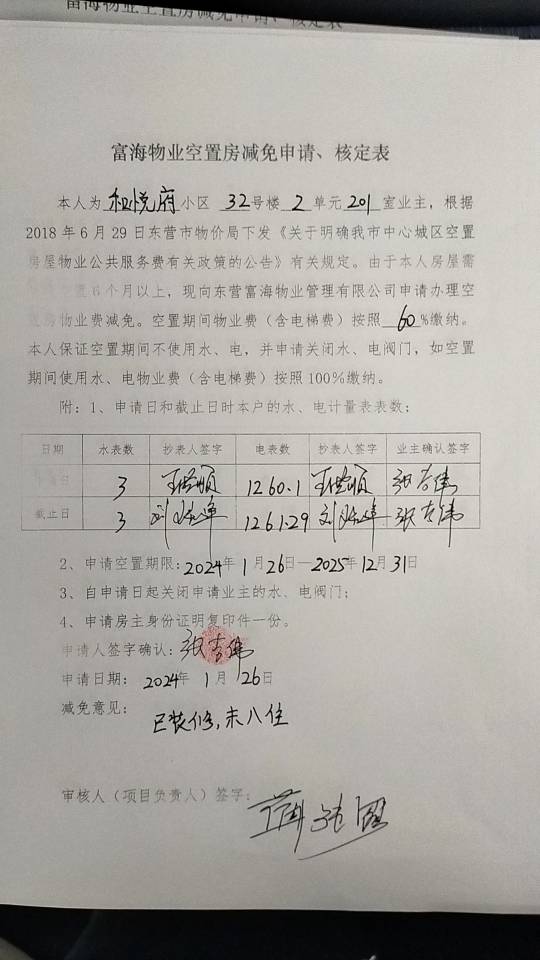 富海物业空置房减免申请、核定表
富海物业空置房减免申请、核定表
本人为 和悦府 小区 32 号楼 2 单元 201 室业主，根据
2018年6月29日东营市物价局下发《关于明确我市中心城区空置
房屋物业公共服务费有关政策的公告》有关规定。由于本人房屋需
空置6个月以上，现向东营富海物业管理有限公司申请办理空
置房物业费减免。空置期间物业费（含电梯费）按照 60 %缴纳。
本人保证空置期间不使用水、电，并申请关闭水、电阀门，如空置
期间使用水、电物业费（含电梯费）按照100%缴纳。
附：1、申请日和截止日时本户的水、电计量表表数；
日期 水表数 抄表人签字 电表数 抄表人签字 业主确认签字
申请日 3 1260.1
截止日 3 1261.29
2、申请空置期限：2024年 1月26日—2025年12月31日
3、自申请日起关闭申请业主的水、电阀门；
4、申请房主身份证明复印件一份。
申请人签字确认：
申请日期： 2024年 1月 26日
减免意见： 已装修，未八住
审核人（项目负责人）签字：